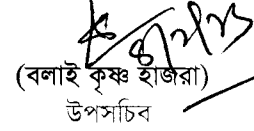 (বলাই কৃষ্ণ হাজরা)
উপসচিব